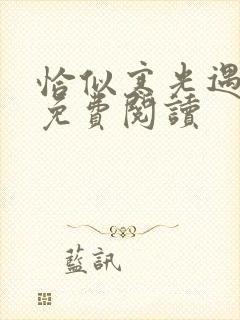 恰似寒光遇
免費閱讀
藍訊